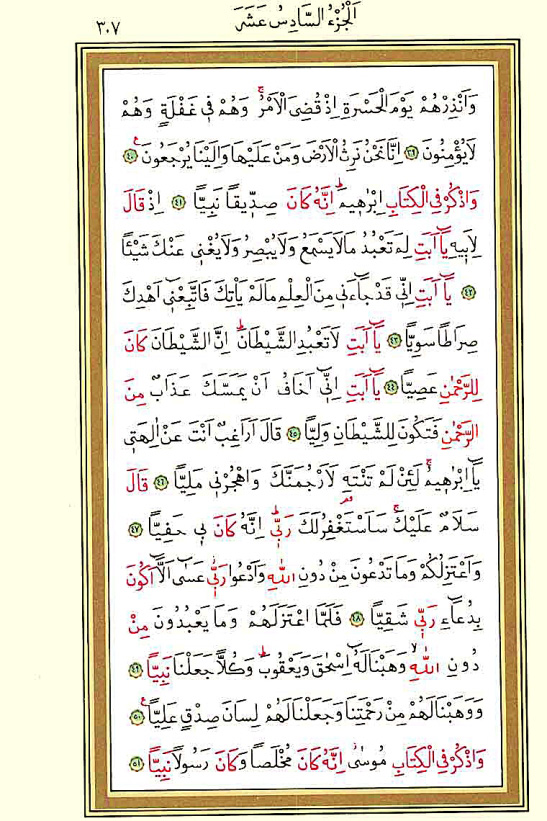 اَلْجُزْءُ السَّادِسُ عَشَرَ
٣٠٧
وَاَنْذِرْهُمْ يَوْمَ الْحَسْرَةِ اِذْ قُضِىَ الْاَمْرُۢ وَهُمْ فٖى غَفْلَةٍ وَهُمْ
لَا يُؤْمِنُونَ ﴿٣٩﴾ اِنَّا نَحْنُ نَرِثُ الْاَرْضَ وَمَنْ عَلَيْهَا وَاِلَيْنَا يُرْجَعُونَ ﴿٤٠﴾
وَاذْكُرْ فِى الْكِتَابِ اِبْرٰهٖيمَؕ اِنَّهُ كَانَ صِدّٖيقًا نَبِيًّا ﴿٤١﴾ اِذْ قَالَ
لِاَبٖيهِ يَٓا اَبَتِ لِمَ تَعْبُدُ مَا لَا يَسْمَعُ وَلَا يُبْصِرُ وَلَا يُغْنٖى عَنْكَ شَيْئًا
﴿٤٢﴾ يَٓا اَبَتِ اِنّٖى قَدْ جَٓاءَنٖى مِنَ الْعِلْمِ مَا لَمْ يَاْتِكَ فَاتَّبِعْنٖٓى اَهْدِكَ
صِرَاطًا سَوِيًّا ﴿٤٣﴾ يَٓا اَبَتِ لَا تَعْبُدِ الشَّيْطَانَؕ اِنَّ الشَّيْطَانَ كَانَ
لِلرَّحْمٰنِ عَصِيًّا ﴿٤٤﴾ يَٓا اَبَتِ اِنّٖٓى اَخَافُ اَنْ يَمَسَّكَ عَذَابٌ مِنَ
الرَّحْمٰنِ فَتَكُونَ لِلشَّيْطَانِ وَلِيًّا ﴿٤٥﴾ قَالَ اَرَاغِبٌ اَنْتَ عَنْ اٰلِهَتٖى
يَٓا اِبْرٰهٖيمُۚ لَئِنْ لَمْ تَنْتَهِ لَاَرْجُمَنَّكَ وَاهْجُرْنٖى مَلِيًّا ﴿٤٦﴾ قَالَ
سَلَامٌ عَلَيْكَۚ سَاَسْتَغْفِرُ لَكَ رَبّٖىؕ اِنَّهُ كَانَ بٖى حَفِيًّا ﴿٤٧﴾
وَاَعْتَزِلُكُمْ وَمَا تَدْعُونَ مِنْ دُونِ اللّٰهِ وَاَدْعُوا رَبّٖىؗ عَسٰٓى اَلَّٓا اَكُونَ
بِدُعَٓاءِ رَبّٖى شَقِيًّا ﴿٤٨﴾ فَلَمَّا اعْتَزَلَهُمْ وَمَا يَعْبُدُونَ مِنْ
دُونِ اللّٰهِۙ وَهَبْنَا لَهُٓ اِسْحٰقَ وَيَعْقُوبَؕ وَكُلًّا جَعَلْنَا نَبِيًّا ﴿٤٩﴾
وَوَهَبْنَا لَهُمْ مِنْ رَحْمَتِنَا وَجَعَلْنَا لَهُمْ لِسَانَ صِدْقٍ عَلِيًّا ﴿٥٠﴾
وَاذْكُرْ فِى الْكِتَابِ مُوسٰىؗ اِنَّهُ كَانَ مُخْلَصًا وَكَانَ رَسُولًا نَبِيًّا ﴿٥١﴾